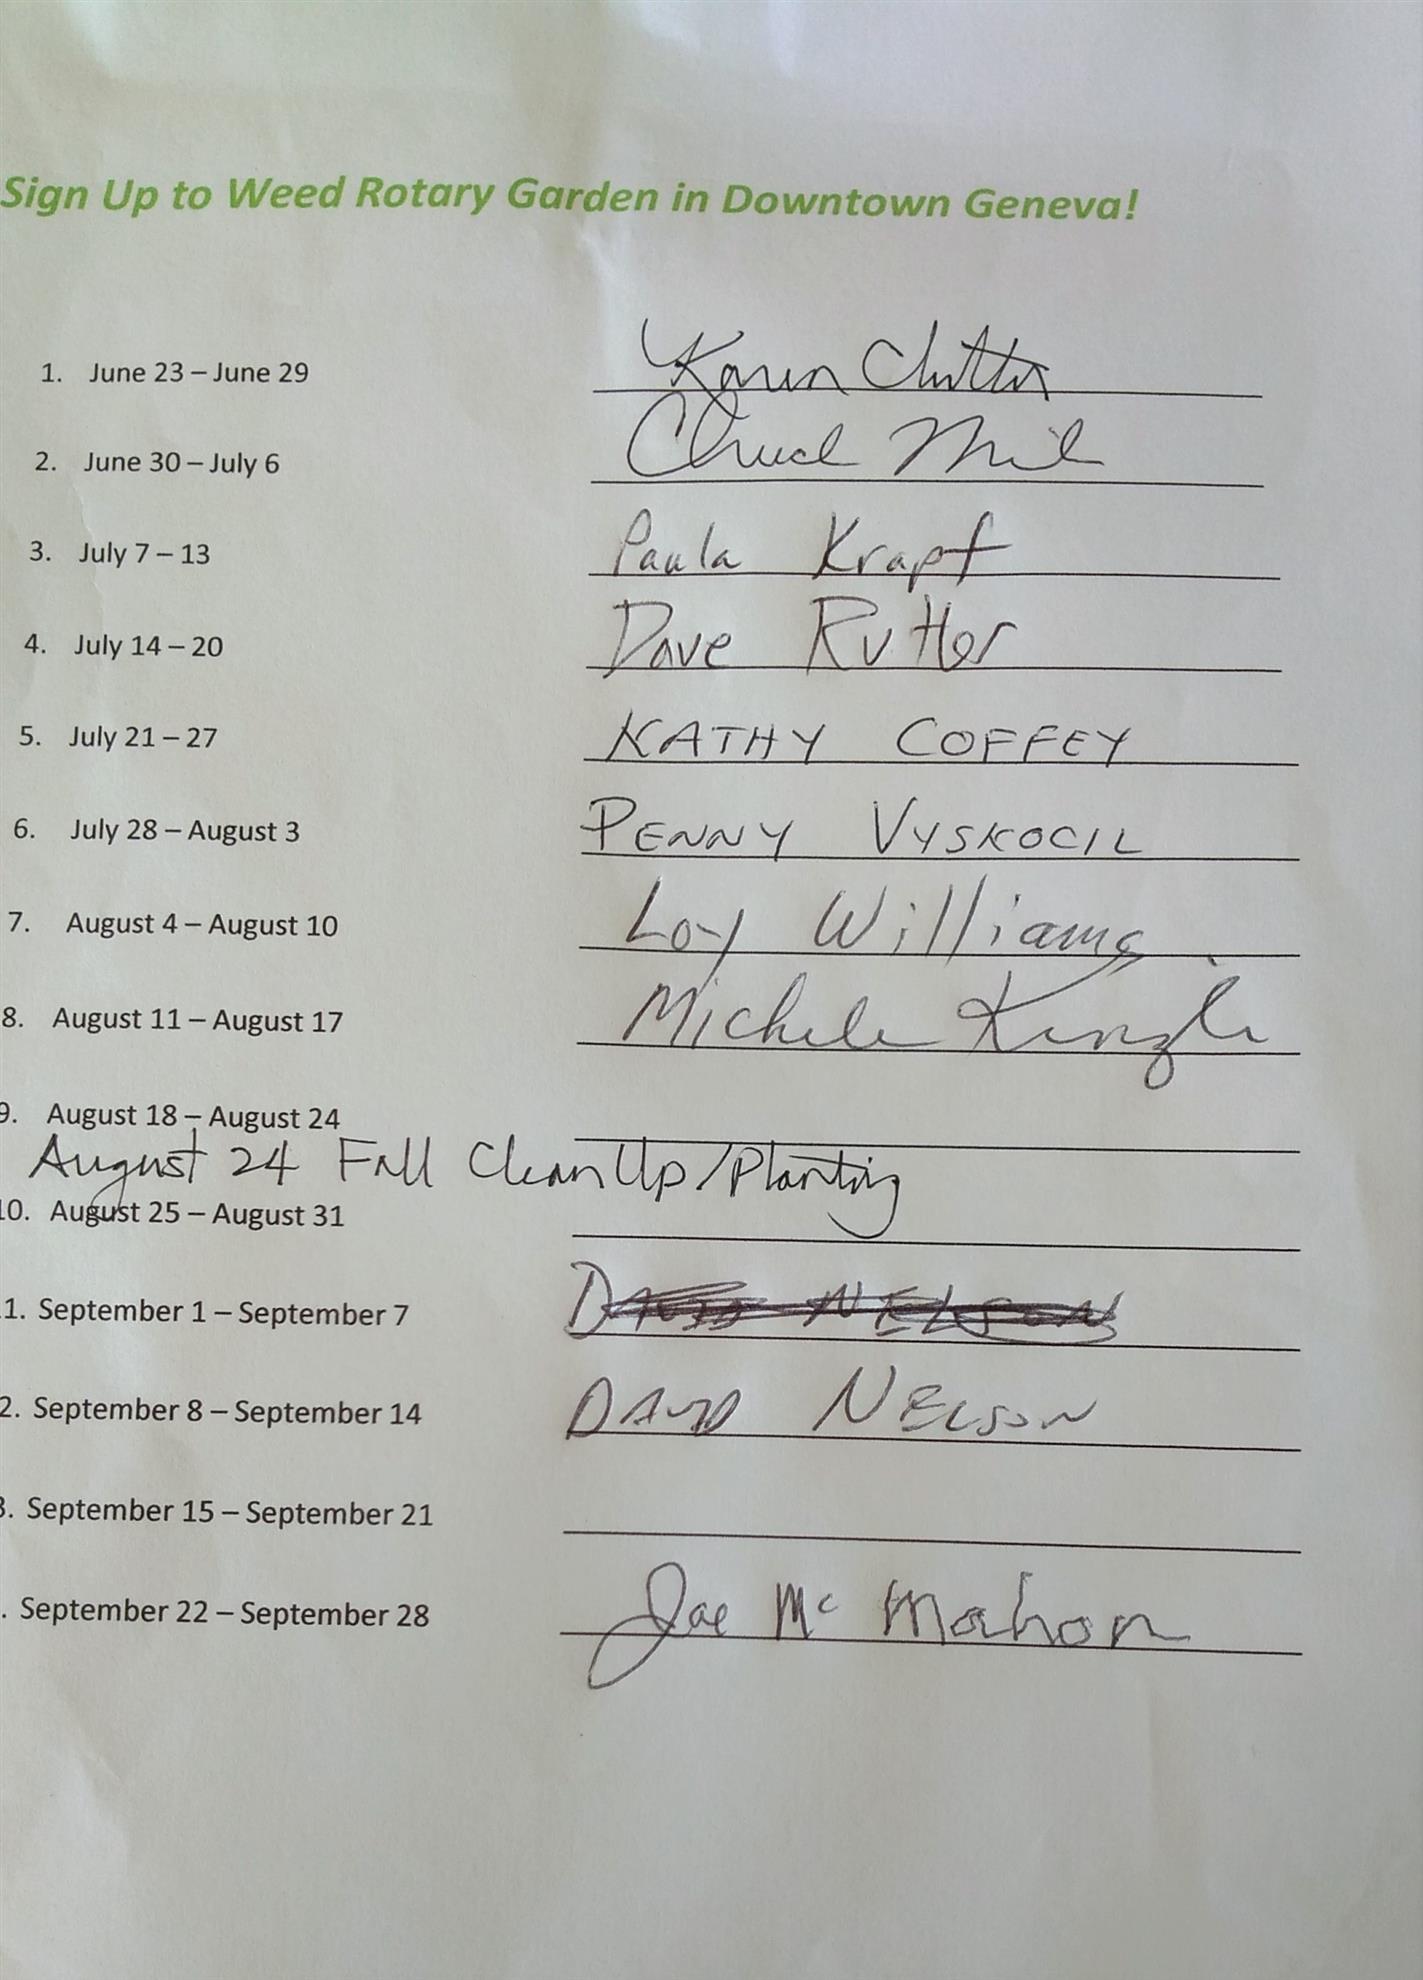 Sign Up to Weed Rotary Garden in Downtown Geneva!
1. June 23 – June 29 Karen
2. June 30 – July 6 Chuck
3. July 7 – 13 Paula Krapf
4. July 14 – 20 Dave Rutter
5. July 21 – 27 KATHY COFFEY
6. July 28 – August 3 PENNY VYSKOCIL
7. August 4 – August 10 Loy Williams
8. August 11 – August 17 Michele
9. August 18 – August 24
August 24 Fall Clean Up/Planting
10. August 25 – August 31
1. September 1 – September 7 DAVID NELSON
2. September 8 – September 14 DAVID NELSON
3. September 15 – September 21
. September 22 – September 28 Joe McMahon